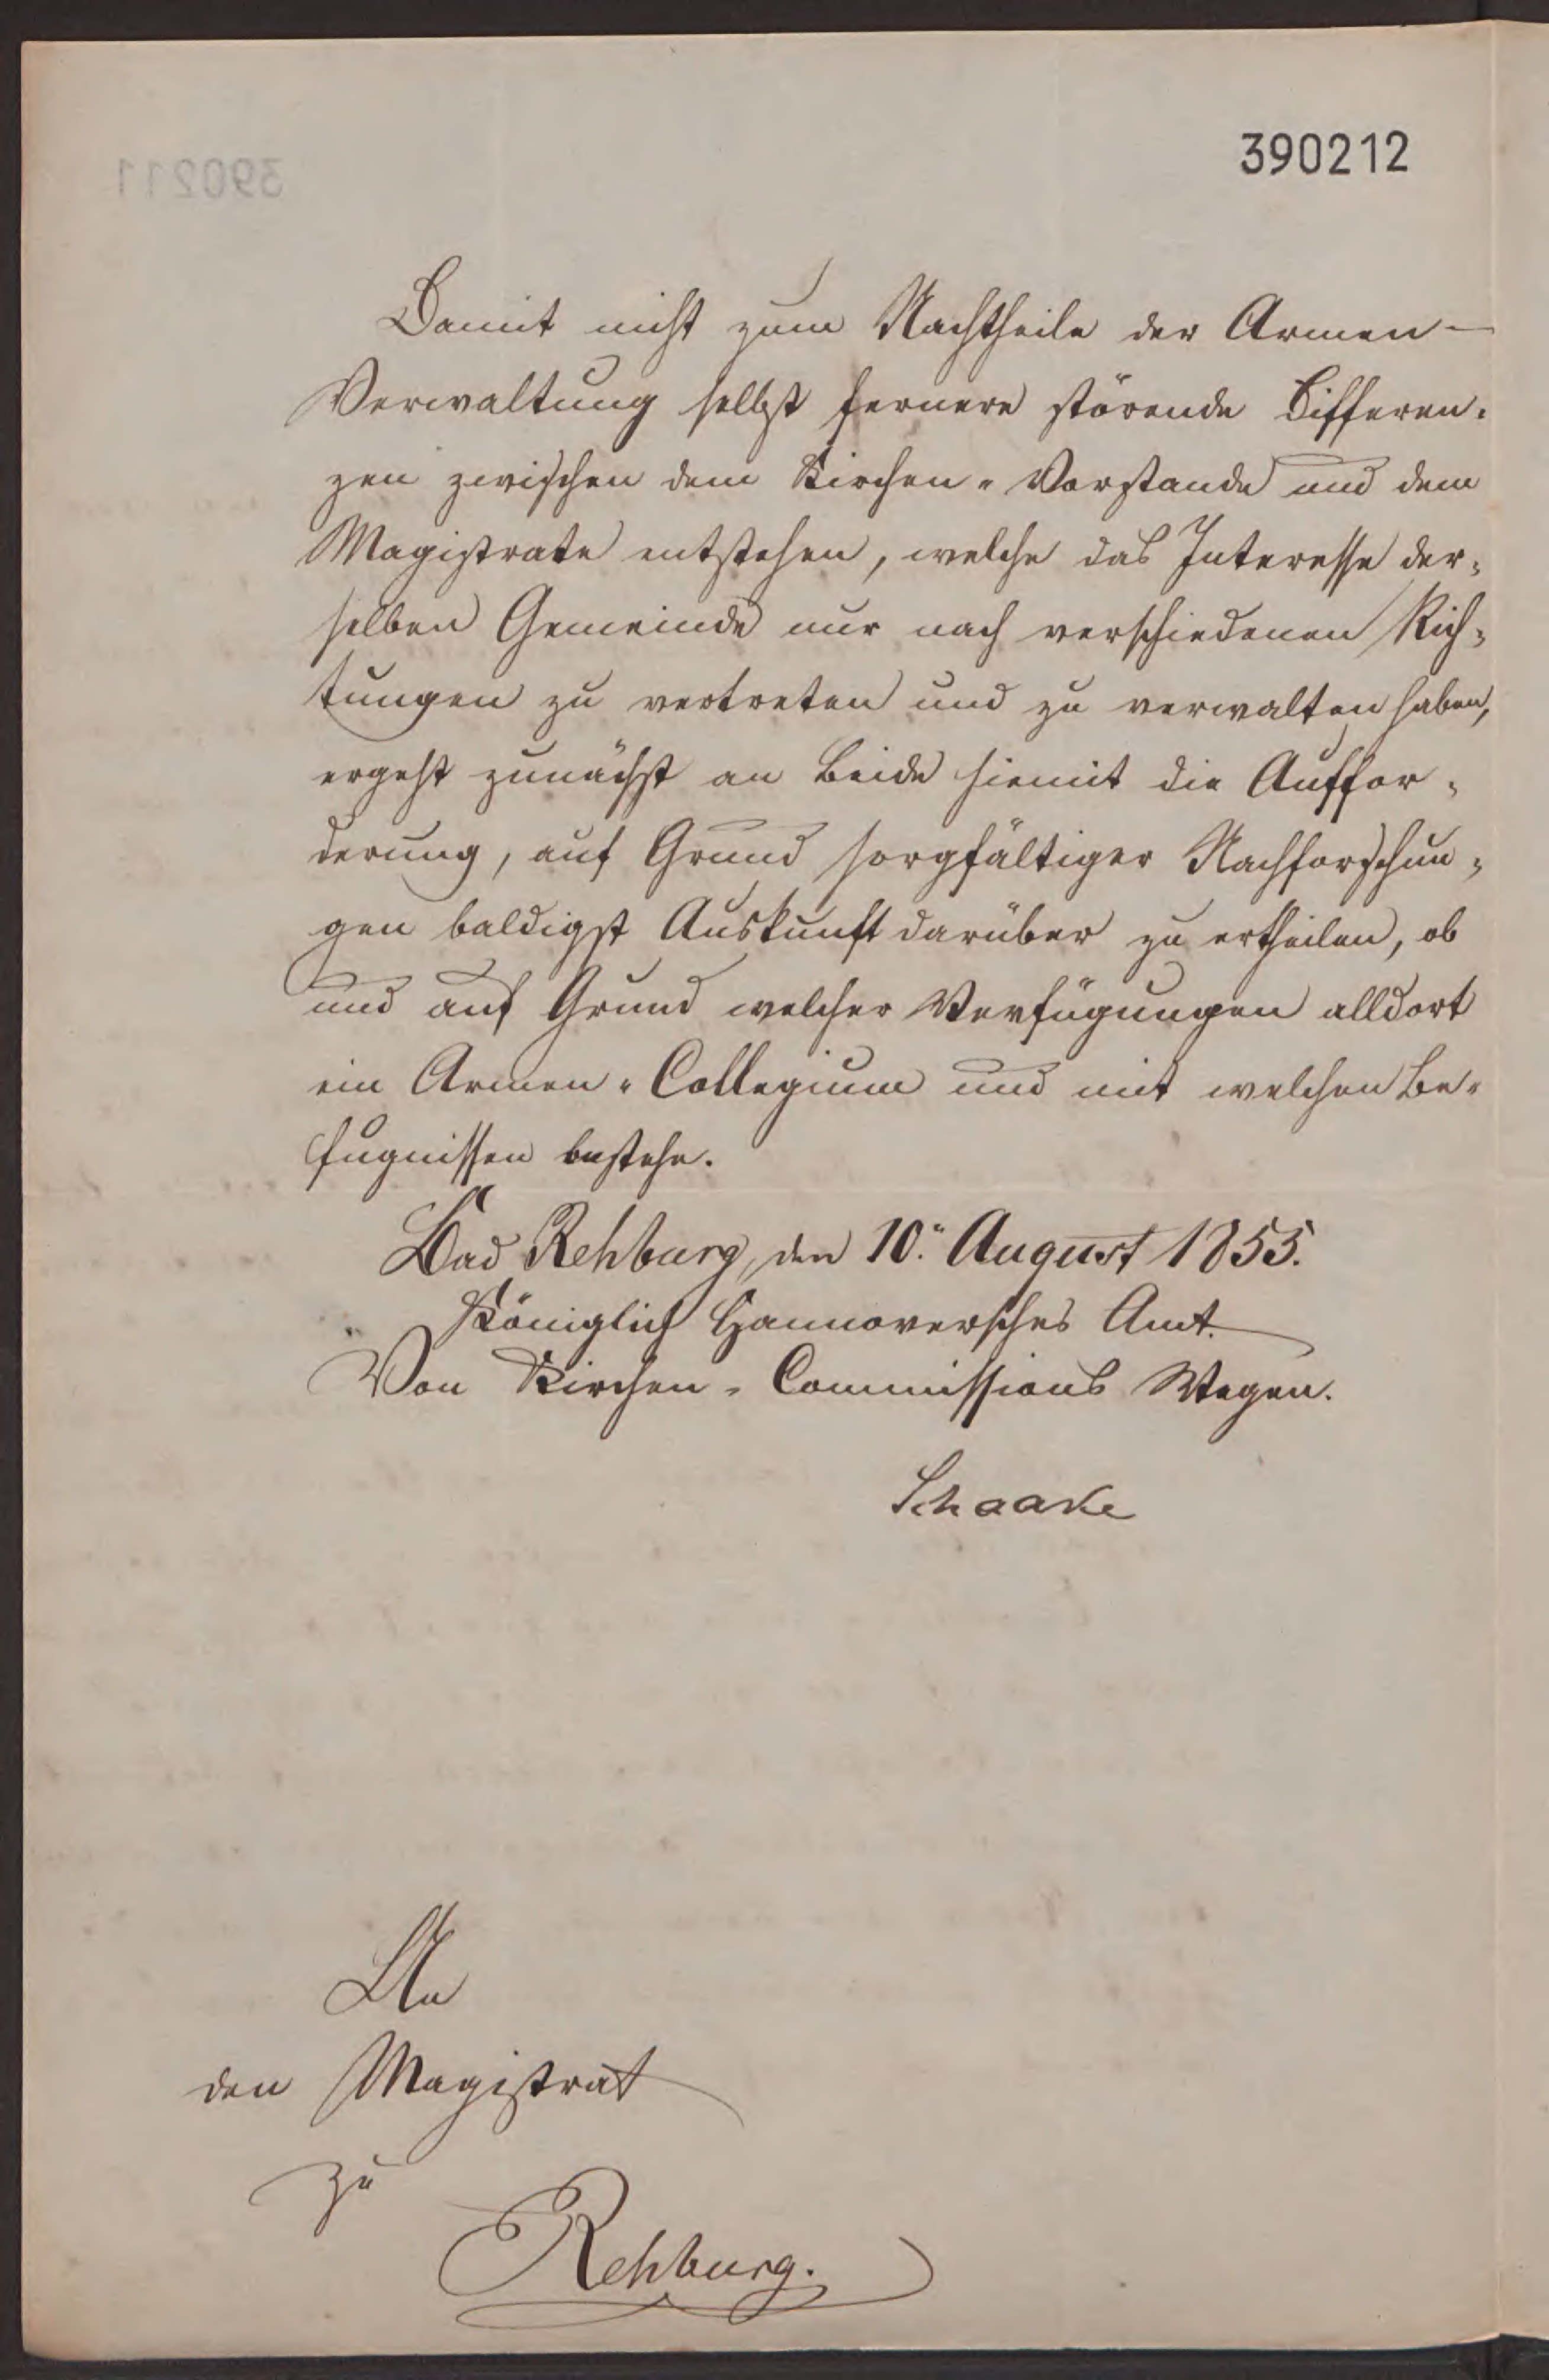 390212
390211
Damit nicht zum Nachtheile der Armen-
Verwaltung selbst fernere störende Differen-
zen zwischen dem Kirchen-Vorstande und dem
Magistrate entstehen, welche das Interesse der-
selben Gemeinde nur nach verschiedenen Rich-
tungen zu vertreten und zu verwalten haben,
ergeht zunächst an beide hiemit die Auffor-
derung, auf Grund sorgfältiger Nachforschun-
gen baldigst Auskunft darüber zu ertheilen, ob
und auf Grund welcher Verfügungen alldort
ein Armen-Collegium und mit welchen Be-
fugnissen bestehe.
Bad Rehburg, den 10. August 1855.
Königlich Hannoversches Amt.
Von Kirchen-Commissions Wegen.
Schaake
An
den Magistrat
zu
Rehburg.